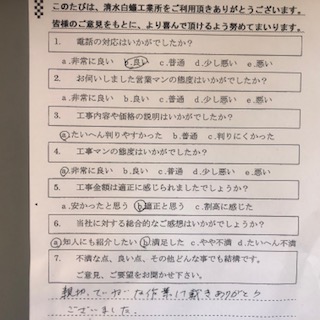 このたびは、清水白蟻工業所をご利用頂きありがとうございます。
皆様のご意見をもとに、より喜んで頂けるよう努めてまいります。
1. 電話の対応はいかがでしたか？
a.非常に良い b.良い c.普通 d.少し悪い e.悪い
2. お伺いしました営業マンの態度はいかがでしたか？
a.非常に良い b.良い c.普通 d.少し悪い e.悪い
3. 工事内容や価格の説明はいかがでしたか？
a.たいへん判りやすかった b.普通 c.判りにくかった
4. 工事マンの態度はいかがでしたか？
a.非常に良い b.良い c.普通 d.少し悪い e.悪い
5. 工事金額は適正に感じられましたでしょうか？
a.安かったと思う b.適正と思う c.割高に感じた
6. 当社に対する総合的なご感想はいかがでしたか？
a.知人にも紹介したい b.満足した c.やや不満 d.たいへん不満
7. 不満な点、良い点、その他どんな事でも結構です。
ご意見、ご要望をお聞かせ下さい。
親切、ていねいな作業して戴きありがとう
ございました